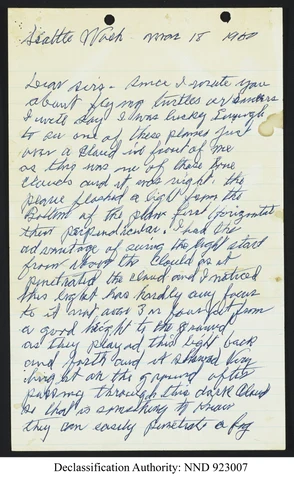 Seattle Wash - Mar 18 1960
Dear sirs - Since I wrote you
about flying turtles or
I will say I was lucky Enough
to see one of these planes just
over a cloud in front of me
as this was one of these
clouds and it was night. the
plane flashed a light from the
Bottom of the plane first horizontal
then perpendicular. I had the
advantage of seeing the light start
from above the cloud as it
penetrated the cloud and I noticed
this light has hardly any focus
to it
a good height to the ground
as they played this light back
and forth and it showed very
bright on the ground after
passing through this dark cloud
so that is something to know
they can easily penetrate a fog
Declassification Authority: NND 923007